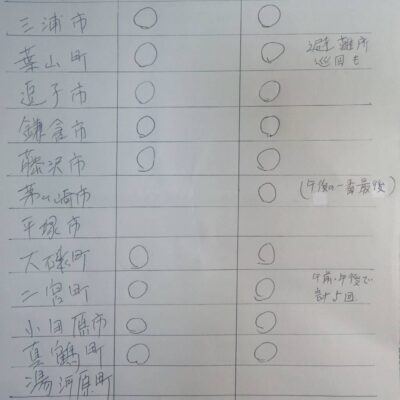 三浦市 ○ ○
葉山町 ○ ○ 避難所
巡回も
逗子市 ○ ○
鎌倉市 ○ ○
藤沢市 ○ ○
茅ヶ崎市 ○ (午後の一番最後)
平塚市
大磯町 ○ ○
二宮町 ○ ○ 午前・午後で
計5回
小田原市 ○ ○
真鶴町 ○ ○
湯河原町